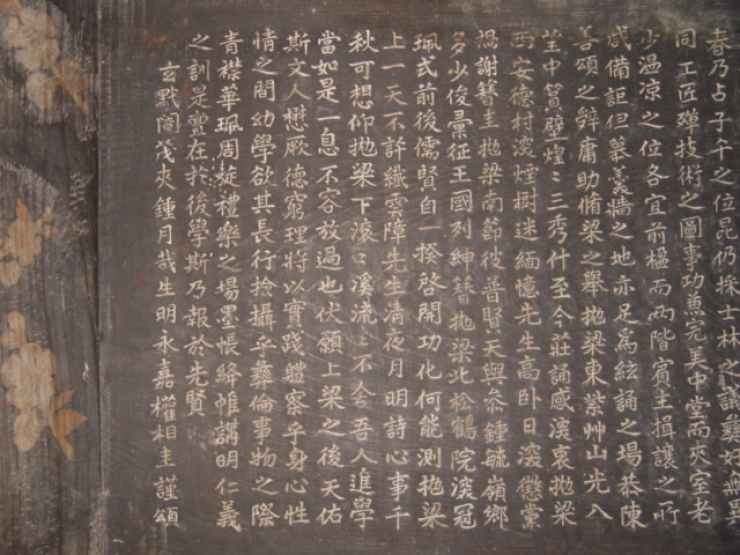 春乃占子午之位昆仍採士林之議龜均無異
同工匠殫技術之圖事功蕙完美中堂而夾室老
少溫凉之位各宜前楹而兩階賓主揖讓之所
咸備詎但慕羹墻之地亦足爲絃誦之場恭陳
善頌之辭庸助脩梁之擧抛梁東紫艸山光入
望中賀壁煌〻三秀什至今莊誦感深衷抛梁
西安德村深煙樹迷緬憶先生高卧日深懲黨
禍謝簪圭抛梁南節彼普賢天與叅鍾毓嶺鄕
多少俊彙征王國列紳簪抛梁北松鶴院深冠
珮式前後儒賢自一揆啓開功化何能測抛梁
上一天不許纖雲障先生淸夜月明詩心事千
秋可想仰抛梁下滾〻溪流〻不舍吾人進學
當如是一息不容放過也伏願上梁之後天佑
斯文人懋厥德窮理將以實踐軆察乎身心性
情之間幼學欲其長行撿攝乎彝倫事物之際
靑襟華珮周旋禮樂之場墨帳絳帷講明仁義
之訓是實在於後學斯乃報於先賢
玄黓閹茂夾鍾月哉生明永嘉權相圭謹頌